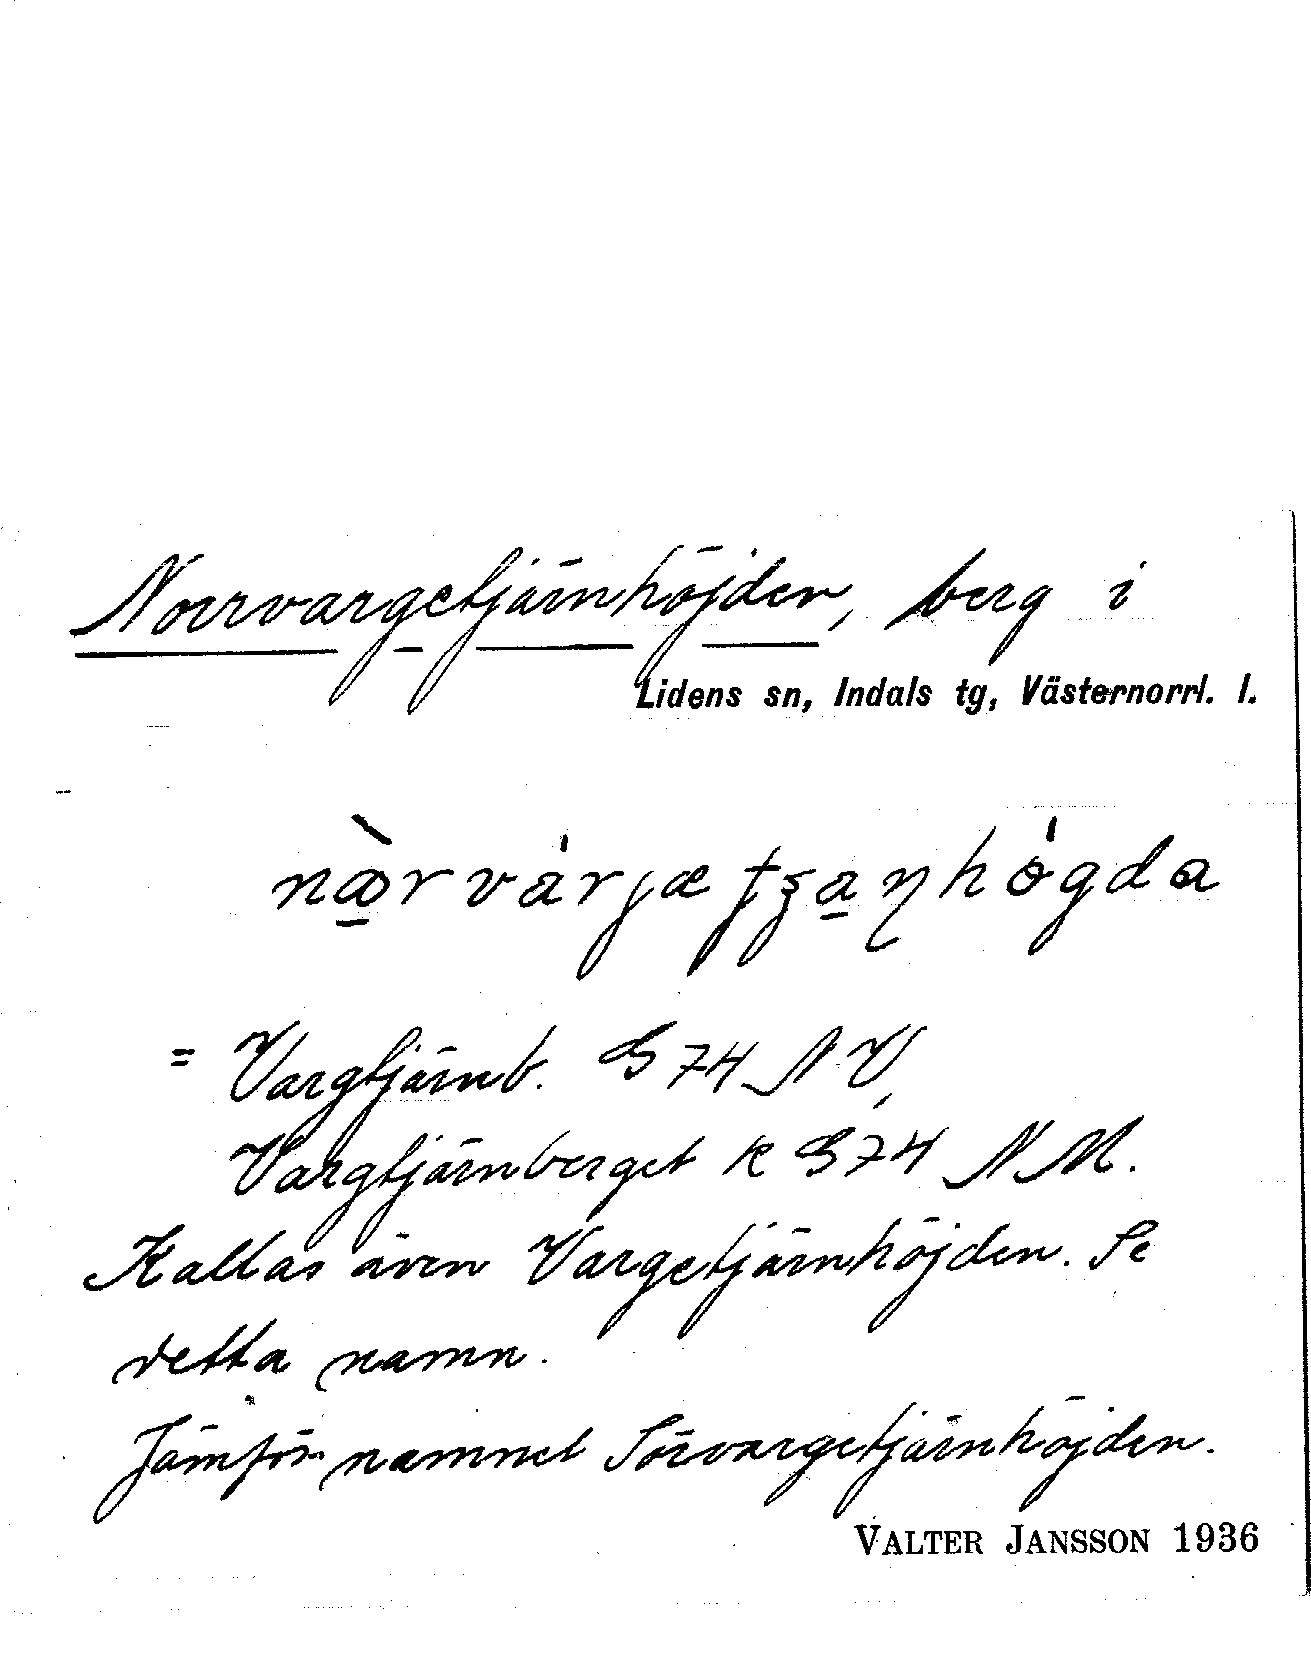 Norrvargetjärnhöjden, berg i
Lidens sn, Indals tg, Västernorrl. l.
= Vargtjärnb. G 74 N V,
Vargtjärnberget k G 74 N M.
Kallas även Vargetjärnhöjden. Se
detta namn.
Jämför namnet Sörvargetjärnhöjden.
VALTER JANSSON 1936